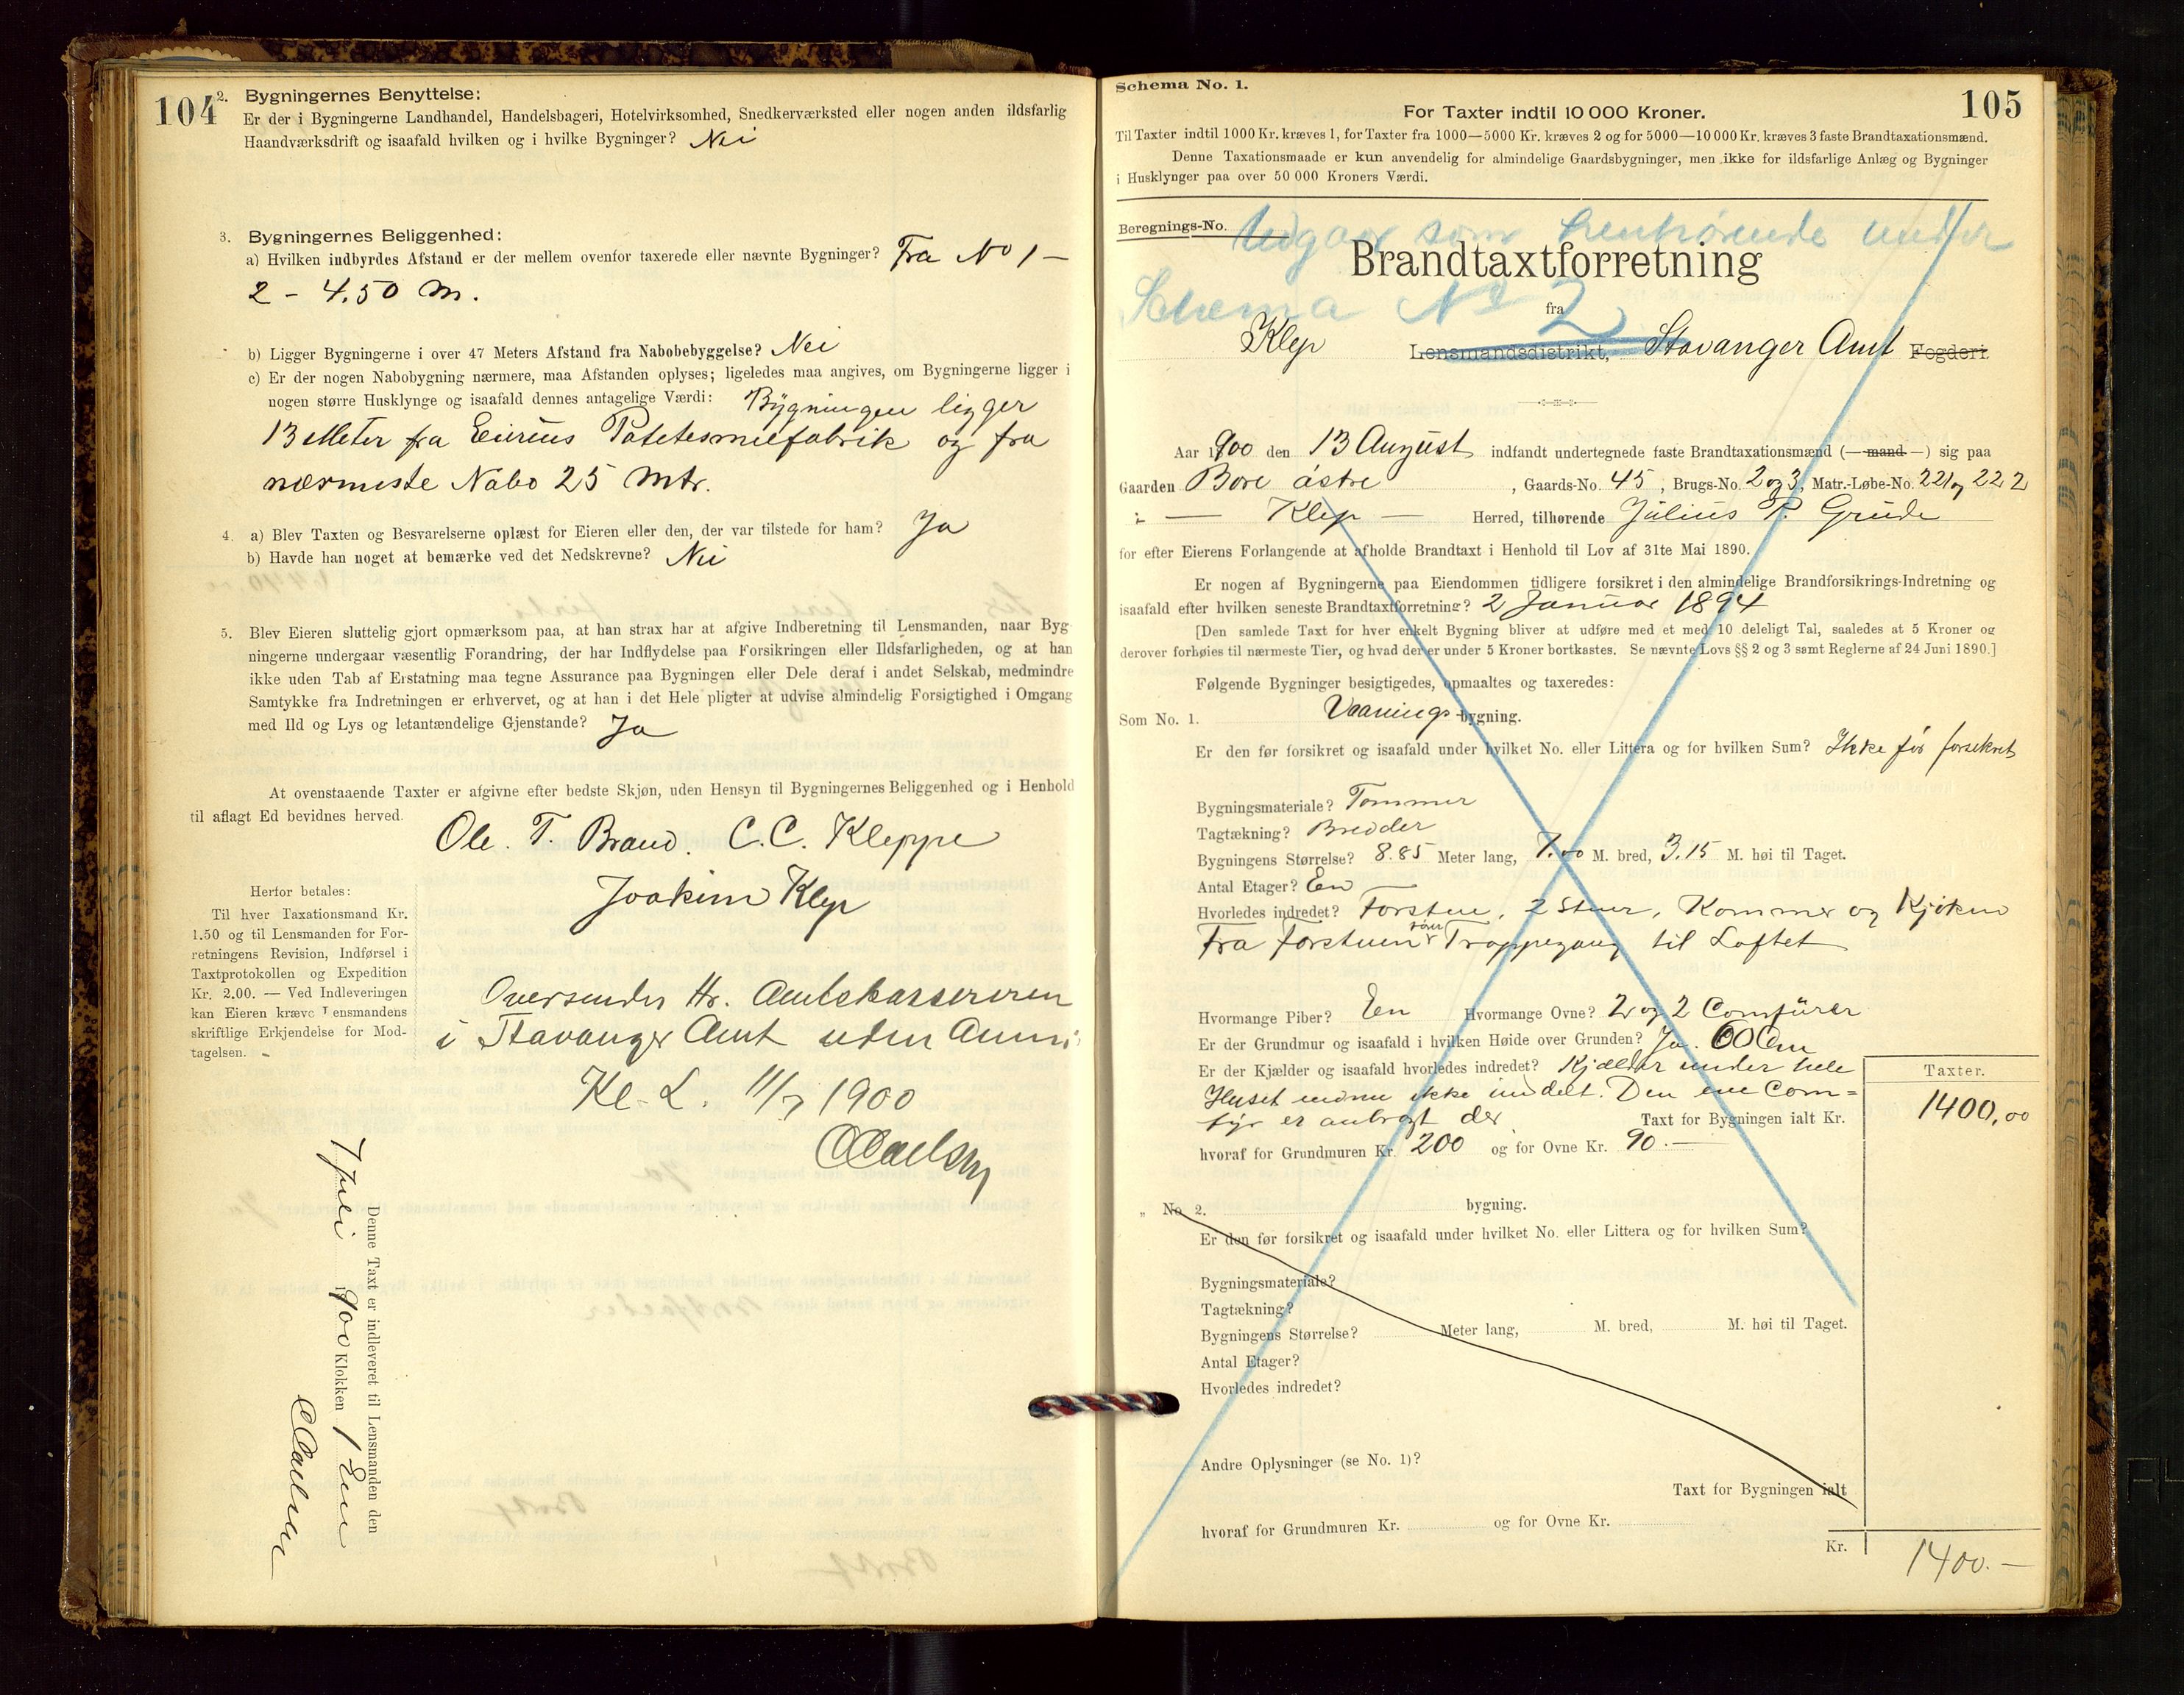 104
2. Bygningernes Benyttelse:
Er der i Bygningerne Landhandel, Handelsbageri, Hotelvirksomhed, Snedkerværksted eller nogen anden ildsfarlig
Haandværksdrift og isaafald hvilken og i hvilke Bygninger? Nei
3. Bygningernes Beliggenhed:
a) Hvilken indbyrdes Afstand er der mellem ovenfor taxerede eller nævnte Bygninger? Fra No 1 –
2 – 4.50 M.
b) Ligger Bygningerne i over 47 Meters Afstand fra Nabobebyggelse? Nei
c) Er der nogen Nabobygning nærmere, maa Afstanden oplyses; ligeledes maa angives, om Bygningerne ligger i
nogen større Husklynge og isaafald dennes antagelige Værdi: Bygningen ligger
13 Meter fra Eierens Potetesmelfabrik og fra
nærmeste Nabo 25 Mtr.
4. a) Blev Taxten og Besvarelserne oplæst for Eieren eller den, der var tilstede for ham? Ja
b) Havde han noget at bemærke ved det Nedskrevne? Nei
5. Blev Eieren sluttelig gjort opmærksom paa, at han strax har at afgive Indberetning til Lensmanden, naar Byg
ningerne undergaar væsentlig Forandring, der har Indflydelse paa Forsikringen eller Ildsfarligheden, og at han
ikke uden Tab af Erstatning maa tegne Assurance paa Bygningen eller Dele deraf i andet Selskab, medmindre
Samtykke fra Indretningen er erhvervet, og at han i det Hele pligter at udvise almindelig Forsigtighed i Omgang
med Ild og Lys og letantændelige Gjenstande? Ja
At ovenstaaende Taxter er afgivne efter bedste Skjøn, uden Hensyn til Bygningernes Beliggenhed og i Henhold
til aflagt Ed bevidnes herved.
Ole. T. Braud. C. C. Kleppe
Joakim Klep
Herfor betales:
Til hver Taxationsmand Kr.
1.50 og til Lensmanden for For-
retningens Revision, Indførsel i
Taxtprotokollen og Expedition
Kr. 2.00. — Ved Indleveringen
kan Eieren kræve Lensmandens
skriftlige Erkjendelse for Mod-
tagelsen.
Oversendes Hr. Amtskassereren
i Stavanger Amt uden Anm:
Kl. L. 11/7 1900
Denne Taxt er indleveret til Lensmanden den
7 Juli 1900 Klokken 1 Em
Schema No. 1.
105
For Taxter indtil 10 000 Kroner.
Til Taxter indtil 1000 Kr. kræves 1, for Taxter fra 1000—5000 Kr. kræves 2 og for 5000—10 000 Kr. kræves 3 faste Brandtaxationsmænd.
Denne Taxationsmaade er kun anvendelig for almindelige Gaardsbygninger, men ikke for ildsfarlige Anlæg og Bygninger
i Husklynger paa over 50 000 Kroners Værdi.
Beregnings-No. Udgaar som henhørende under
Brandtaxtforretning
Schema No 2
fra
Klep Lensmandsdistrikt, Stavanger Amt Fogderi
Aar 1900 den 13 August indfandt undertegnede faste Brandtaxationsmænd (— mand —) sig paa
Gaarden Bore østre, Gaards-No. 45, Brugs-No. 2 og 3, Matr.-Løbe-No. 221 og 222
i — Klep — Herred, tilhørende Julius P. Grude
for efter Eierens Forlangende at afholde Brandtaxt i Henhold til Lov af 31te Mai 1890.
Er nogen af Bygningerne paa Eiendommen tidligere forsikret i den almindelige Brandforsikrings-Indretning og
isaafald efter hvilken seneste Brandtaxtforretning? 2 Januar 1894
[Den samlede Taxt for hver enkelt Bygning bliver at udføre med et med 10 deleligt Tal, saaledes at 5 Kroner og
derover forhøies til nærmeste Tier, og hvad der er under 5 Kroner bortkastes. Se nævnte Lovs §§ 2 og 3 samt Reglerne af 24 Juni 1890.]
Følgende Bygninger besigtigedes, opmaaltes og taxeredes:
Som No. 1. Vaanings bygning.
Er den før forsikret og isaafald under hvilket No. eller Littera og for hvilken Sum? Ikke før forsekret
Bygningsmateriale? Tømmer
Tagtækning? Bredder
Bygningens Størrelse? 8.85 Meter lang, 7.00 M. bred, 3.15 M. høi til Taget.
Antal Etager? En
Hvorledes indredet? Forstue, 2 Stuer, Kammer og Kjøken
Fra forstuen fører Trappegang til Loftet
Hvormange Piber? En Hvormange Ovne? 2 og 2 Comfürer
Er der Grundmur og isaafald i hvilken Høide over Grunden? Ja. 60 Cm
Er der Kjælder og isaafald hvorledes indredet? Kjælder under hele
Huset endnu ikke inndelt. Den ene Com=
fyr er anbragt der Taxt for Bygningen ialt Kr.
Taxter.
1400,00
hvoraf for Grundmuren Kr. 200 og for Ovne Kr. 90.—
„ No. 2. bygning.
Er den før forsikret og isaafald under hvilket No. eller Littera og for hvilken Sum?
Bygningsmateriale?
Tagtækning?
Bygningens Størrelse? Meter lang, M. bred, M. høi til Taget.
Antal Etager?
Hvorledes indredet?
Andre Oplysninger (se No. 1)?
Taxt for Bygningen ialt
hvoraf for Grundmuren Kr. og for Ovne Kr.
Kr. 1400.—